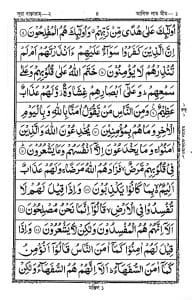 সূরা বাকারাহ্—২ ৪ আলিফ লাম মীম—১
اُولٰٓئِكَ عَلٰى هُدًى مِّنْ رَّبِّهِمْ وَاُولٰٓئِكَ هُمُ الْمُفْلِحُوْنَ
اِنَّ الَّذِيْنَ كَفَرُوْا سَوَآءٌ عَلَيْهِمْ ءَاَنْذَرْتَهُمْ اَمْ لَمْ
تُنْذِرْهُمْ لَا يُؤْمِنُوْنَ خَتَمَ اللّٰهُ عَلٰى قُلُوْبِهِمْ وَعَلٰى
سَمْعِهِمْ وَعَلٰٓى اَبْصَارِهِمْ غِشَاوَةٌ وَّلَهُمْ عَذَابٌ
عَظِيْمٌ وَمِنَ النَّاسِ مَنْ يَّقُوْلُ اٰمَنَّا بِاللّٰهِ وَبِالْيَوْمِ
الْاٰخِرِ وَمَا هُمْ بِمُؤْمِنِيْنَ يُخٰدِعُوْنَ اللّٰهَ وَالَّذِيْنَ
اٰمَنُوْا وَمَا يَخْدَعُوْنَ اِلَّآ اَنْفُسَهُمْ وَمَا يَشْعُرُوْنَ
فِيْ قُلُوْبِهِمْ مَّرَضٌ فَزَادَهُمُ اللّٰهُ مَرَضًا وَلَهُمْ عَذَابٌ
اَلِيْمٌ بِمَا كَانُوْا يَكْذِبُوْنَ وَاِذَا قِيْلَ لَهُمْ لَا
تُفْسِدُوْا فِى الْاَرْضِ قَالُوْٓا اِنَّمَا نَحْنُ مُصْلِحُوْنَ
اَلَآ اِنَّهُمْ هُمُ الْمُفْسِدُوْنَ وَلٰكِنْ لَّا يَشْعُرُوْنَ وَاِذَا
قِيْلَ لَهُمْ اٰمِنُوْا كَمَآ اٰمَنَ النَّاسُ قَالُوْٓا اَنُؤْمِنُ
كَمَآ اٰمَنَ السُّفَهَآءُ اَلَآ اِنَّهُمْ هُمُ السُّفَهَآءُ وَلٰكِنْ
মঞ্জিল ১